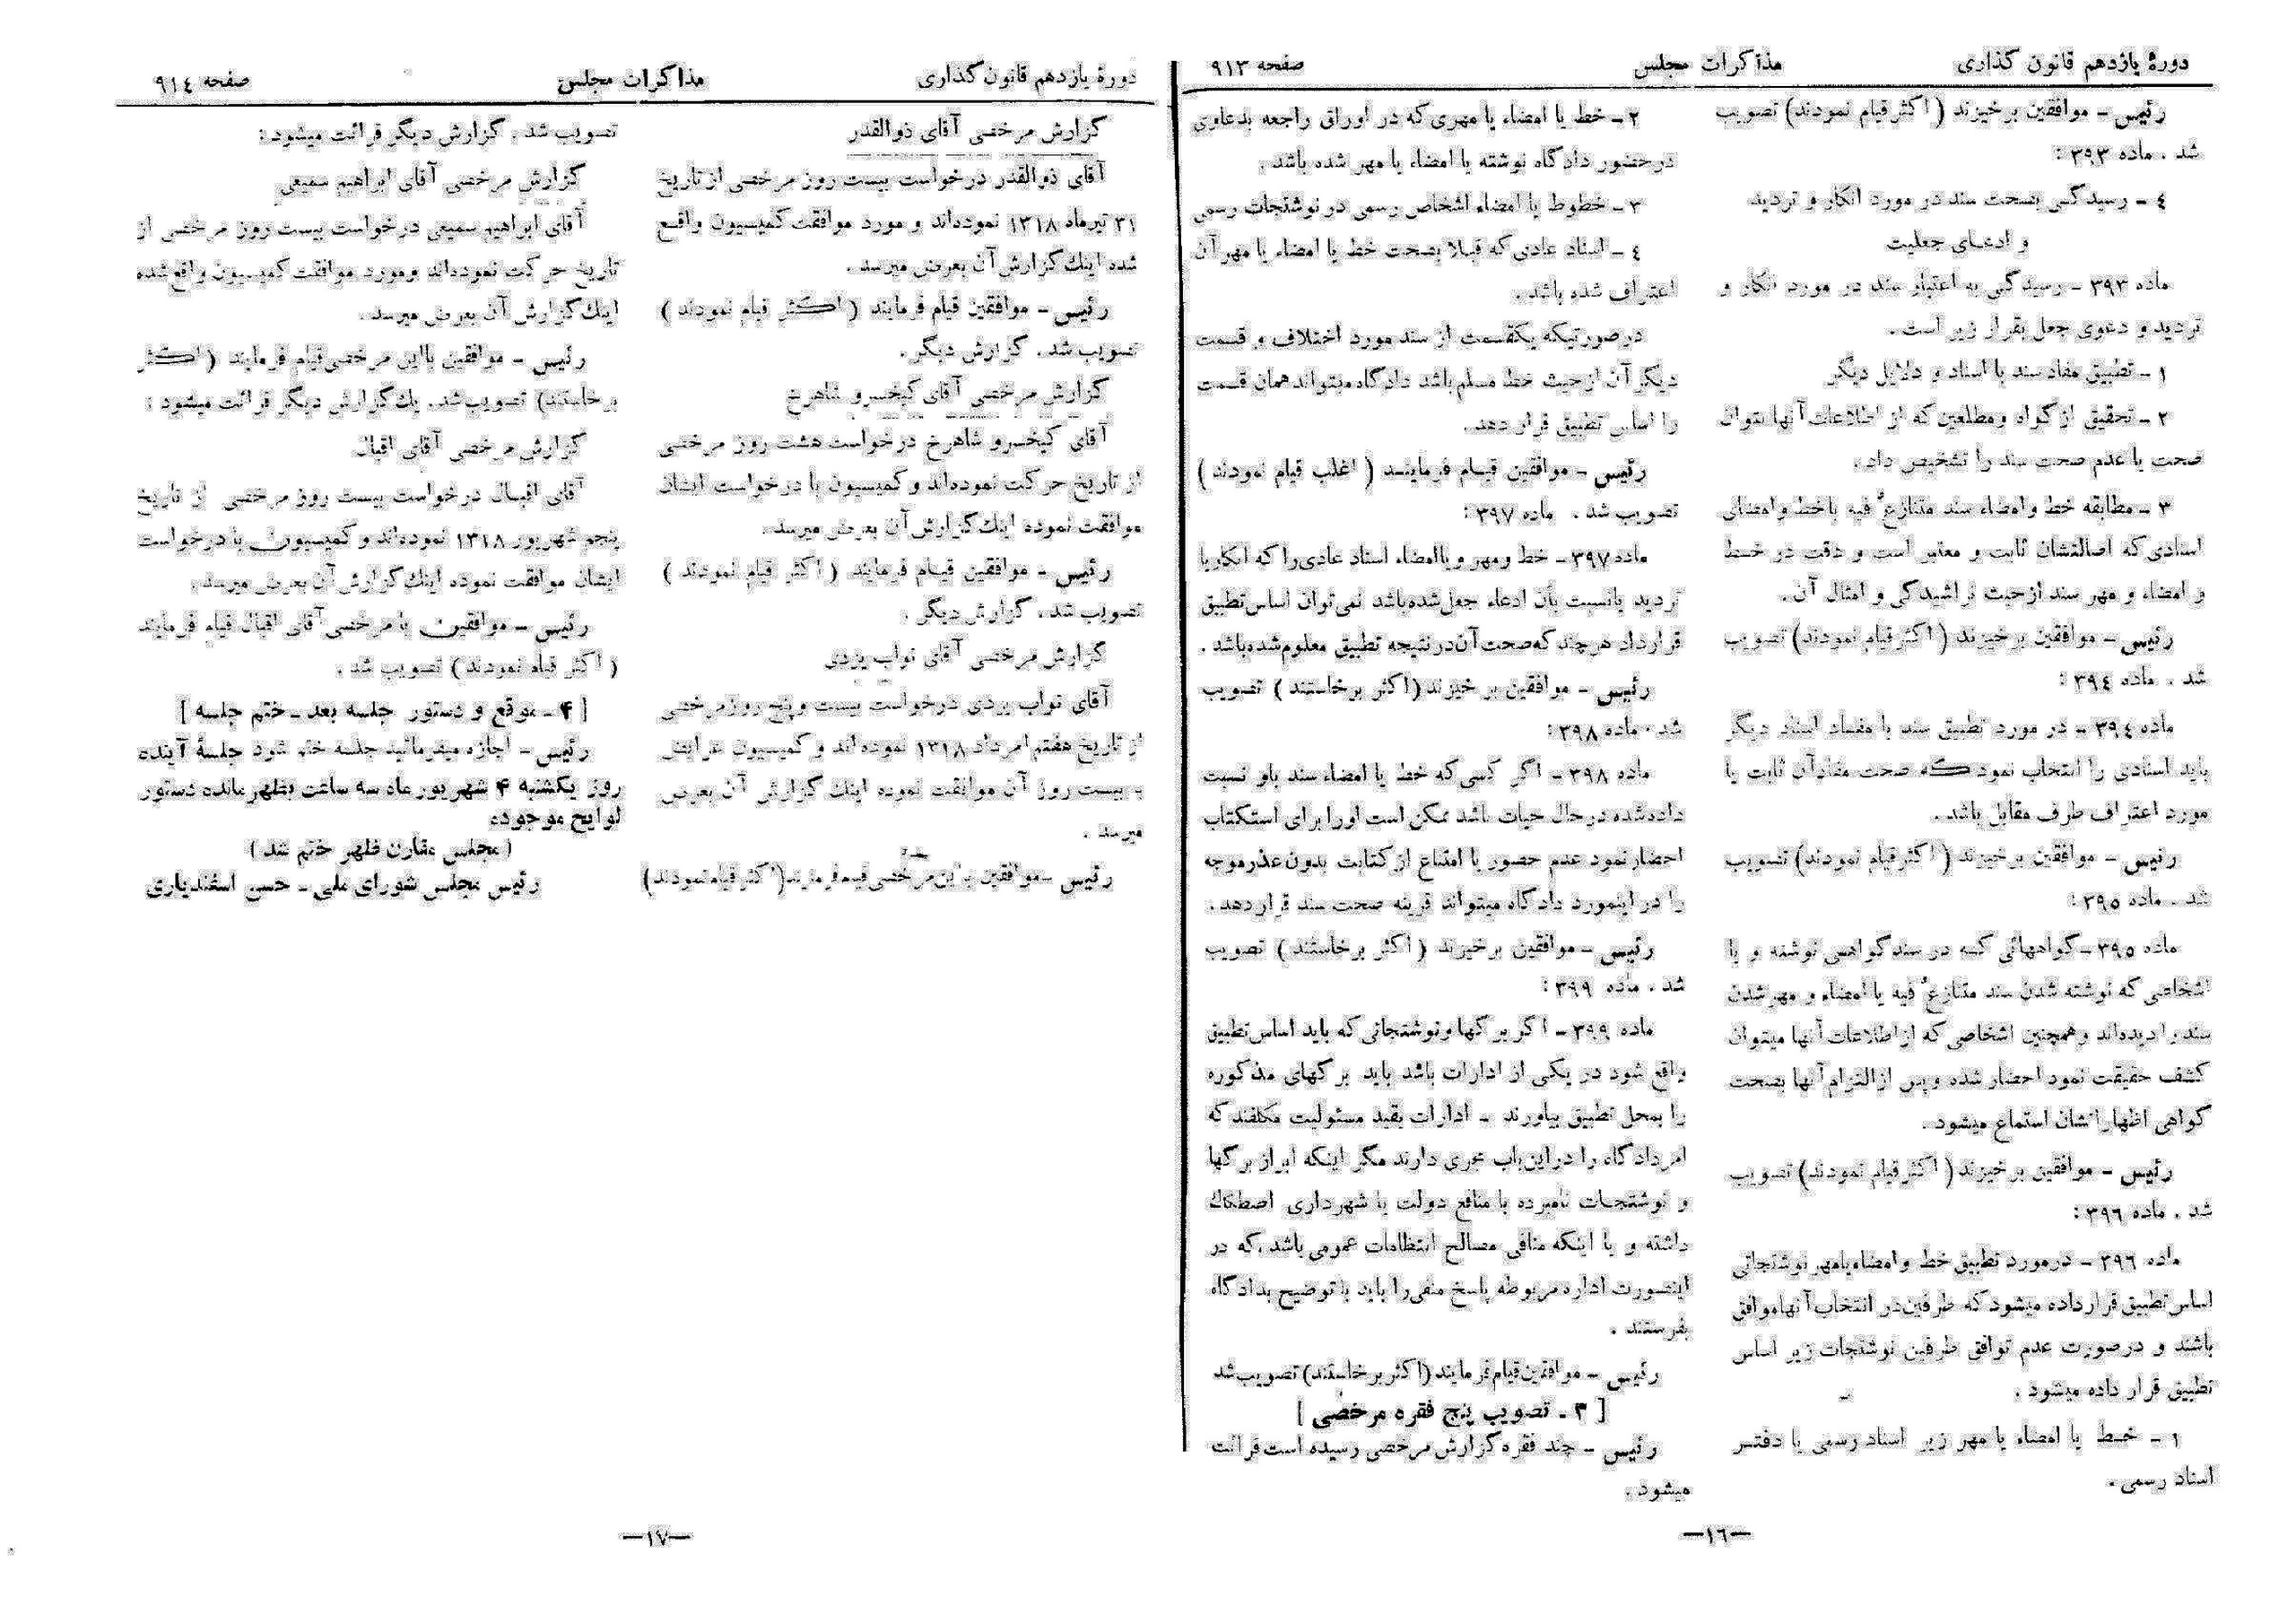 دورهٔ یازدهم قانون گذاری
مذاکرات مجلس
صفحه ۹۱۳
رئیس - موافقین برخیزند (اکثر قیام نمودند) تصویب
شد . ماده ۳۹۳ :
٤ - رسیدگی بصحت سند در مورد انکار و تردید
و ادعای جعلیت
ماده ۳۹۳ - رسیدگی به اعتبار سند در مورد انکار و
تردید و دعوی جعل بقرار زیر است .
۱ - تطبیق مفاد سند با اسناد و دلایل دیگر
۲ - تحقیق از گواه و مطلعین که از اطلاعات آنها بتوان
صحت یا عدم صحت سند را تشخیص داد .
۳ - مطابقه خط و امضاء سند متنازعٌ فیه با خط و امضای
اسنادی که اصالتشان ثابت و معتبر است و دقت در خط
و امضاء و مهر سند از حیث تراشیدگی و امثال آن .
رئیس - موافقین برخیزند (اکثر قیام نمودند) تصویب
شد . ماده ۳۹٤ :
ماده ۳۹٤ - در مورد تطبیق سند با مفاد اسناد دیگر
باید اسنادی را انتخاب نمود که صحت مفاد آن ثابت یا
مورد اعتراف طرف مقابل باشد .
رئیس - موافقین برخیزند (اکثر قیام نمودند) تصویب
شد . ماده ۳۹٥ :
ماده ۳۹٥ - گواههائی کـه در سند گواهی نوشته و یا
اشخاصی که نوشته شدن سند متنازعٌ فیه یا امضاء و مهر شدن
سند را دیده‌اند و همچنین اشخاصی که از اطلاعات آنها میتوان
کشف حقیقت نمود احضار شده و پس از التزام آنها بصحت
گواهی اظهاراتشان استماع میشود .
رئیس - موافقین برخیزند (اکثر قیام نمودند) تصویب
شد . ماده ۳۹٦ :
ماده ۳۹٦ - در مورد تطبیق خط و امضاء یا مهر نوشتجاتی
اساس تطبیق قرار داده میشود که طرفین در انتخاب آنها موافق
باشند و در صورت عدم توافق طرفین نوشتجات زیر اساس
تطبیق قرار داده میشود .
۱ - خط یا امضاء یا مهر زیر اسناد رسمی یا دفتر
اسناد رسمی .
۲ - خط یا امضاء یا مهری که در اوراق راجعه بدعاوی
در حضور دادگاه نوشته یا امضاء یا مهر شده باشد .
۳ - خطوط یا امضاء اشخاص رسمی در نوشتجات رسمی
٤ - اسناد عادی که قبلا بصحت خط یا امضاء یا مهر آن
اعتراف شده باشد .
در صورتیکه یکقسمت از سند مورد اختلاف و قسمت
دیگر آن از حیث خط مسلم باشد دادگاه میتواند همان قسمت
را اساس تطبیق قرار دهد .
رئیس - موافقین قیام فرمایند ( اغلب قیام نمودند )
تصویب شد . ماده ۳۹۷ :
ماده ۳۹۷ - خط و مهر و یا امضاء اسناد عادی را که انکار یا
تردید یا نسبت بآن ادعاء جعل شده باشد نمی‌توان اساس تطبیق
قرارداد هرچند که صحت آن در نتیجه تطبیق معلوم شده باشد .
رئیس - موافقین برخیزند (اکثر برخاستند ) تصویب
شد . ماده ۳۹۸ :
ماده ۳۹۸ - اگر کسی که خط یا امضاء سند باو نسبت
داده شده در حال حیات باشد ممکن است او را برای استکتاب
احضار نمود عدم حضور یا امتناع از کتابت بدون عذر موجه
را در اینمورد دادگاه میتواند قرینه صحت سند قرار دهد .
رئیس - موافقین برخیزند ( اکثر برخاستند ) تصویب
شد . ماده ۳۹۹ :
ماده ۳۹۹ - اگر برگها و نوشتجاتی که باید اساس تطبیق
واقع شود در یکی از ادارات باشد باید برگهای مذکوره
را بمحل تطبیق بیاورند - ادارات بقید مسئولیت مکلفند که
امر دادگاه را در این باب مجری دارند مگر اینکه ابراز برگها
و نوشتجات نامبرده با منافع دولت یا شهرداری اصطکاك
داشته و یا اینکه منافی مصالح انتظامات عمومی باشد ، که در
اینصورت اداره مربوطه پاسخ منفی را باید با توضیح بدادگاه
بفرستند .
رئیس - موافقین قیام فرمایند (اکثر برخاستند) تصویب شد
[ ۳ - تصویب پنج فقره مرخصی ]
رئیس - چند فقره گزارش مرخصی رسیده است قرائت
میشود .
—۱٦—
دورهٔ یازدهم قانون گذاری
مذاکرات مجلس
صفحه ۹۱٤
گزارش مرخصی آقای ذوالقدر
آقای ذوالقدر درخواست بیست روز مرخصی از تاریخ
۳۱ تیرماه ۱۳۱۸ نموده‌اند و مورد موافقت کمیسیون واقع
شده اینك گزارش آن بعرض میرسد .
رئیس - موافقین قیام فرمایند ( اکثر قیام نمودند )
تصویب شد . گزارش دیگر .
گزارش مرخصی آقای کیخسرو شاهرخ
آقای کیخسرو شاهرخ درخواست هشت روز مرخصی
از تاریخ حرکت نموده‌اند و کمیسیون با درخواست ایشان
موافقت نموده اینك گزارش آن بعرض میرسد .
رئیس - موافقین قیام فرمایند ( اکثر قیام نمودند )
تصویب شد . گزارش دیگر .
گزارش مرخصی آقای نواب یزدی
آقای نواب یزدی درخواست بیست و پنج روز مرخصی
از تاریخ هفتم امرداد ۱۳۱۸ نموده‌اند و کمیسیون عرایض
با بیست روز آن موافقت نموده اینك گزارش آن بعرض
میرسد .
رئیس - موافقین با این مرخصی قیام فرمایند (اکثر قیام نمودند)
تصویب شد . گزارش دیگر قرائت میشود :
گزارش مرخصی آقای ابراهیم سمیعی
آقای ابراهیم سمیعی درخواست بیست روز مرخصی از
تاریخ حرکت نموده‌اند و مورد موافقت کمیسیون واقع شده
اینك گزارش آن بعرض میرسد .
رئیس - موافقین با این مرخصی قیام فرمایند ( اکثر
برخاستند) تصویب شد . یك گزارش دیگر قرائت میشود :
گزارش مرخصی آقای اقبال
آقای اقبال درخواست بیست روز مرخصی از تاریخ
پنجم شهریور ۱۳۱۸ نموده‌اند و کمیسیون با درخواست
ایشان موافقت نموده اینك گزارش آن بعرض میرسد .
رئیس - موافقین با مرخصی آقای اقبال قیام فرمایند
( اکثر قیام نمودند ) تصویب شد .
[ ۴ - موقع و دستور جلسه بعد - ختم جلسه ]
رئیس - اجازه میفرمائید جلسه ختم شود جلسهٔ آینده
روز یکشنبه ۴ شهریور ماه سه ساعت بظهر مانده دستور
لوایح موجوده
( مجلس مقارن ظهر ختم شد )
رئیس مجلس شورای ملی - حسن اسفندیاری
—۱۷—